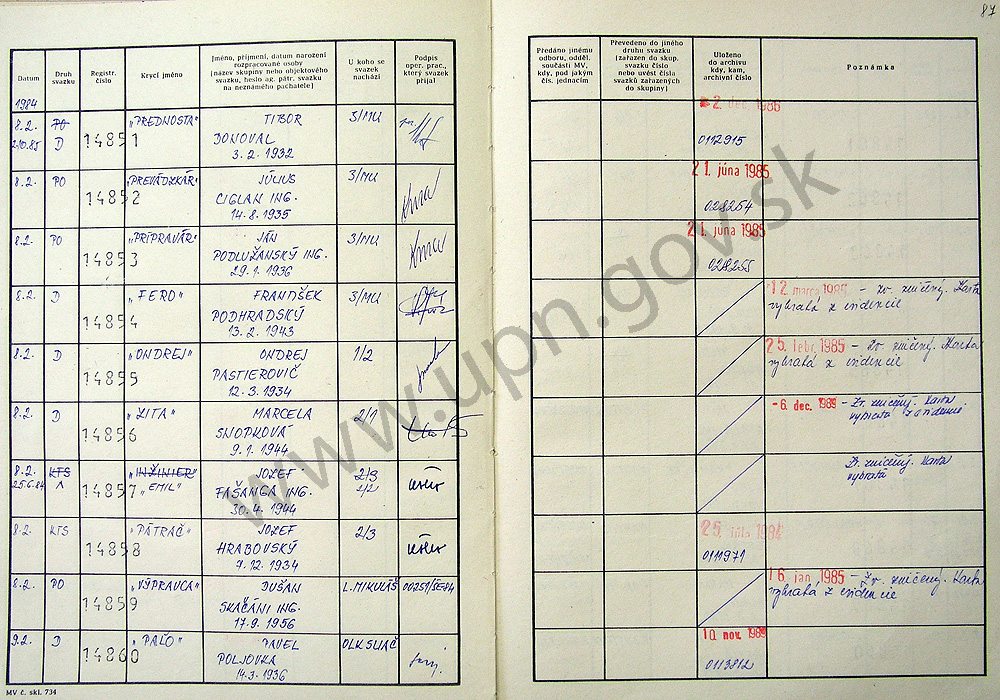 87
Datum
Druh svazku
Registr. číslo
Krycí jméno
Jméno, příjmení, datum narození rozpracované osoby (název skupiny nebo objektového svazku, heslo ag. pátr. svazku na neznámého pachatele)
U koho se svazek nachází
Podpis oper. prac., který svazek přijal
Předáno jinému odboru, odděl. součásti MV, kdy, pod jakým čís. jednacím
Převedeno do jiného druhu svazku (zařazen do skup. svazku číslo nebo uvést čísla svazků zařazených do skupiny)
Uloženo do archivu kdy, kam, archivní číslo
Poznámka
1984
8.2. PO 14851 "PREDNOSTA" TIBOR 3/MU
2.10.85 D DONOVAL
3.2.1932
2. dec. 1986
0112915
8.2. PO 14852 "PREVÁDZKÁR" JÚLIUS 3/MU
CIGLAN ING.
14.8.1935
21. júna 1985
028254
8.2. PO 14853 "PRÍPRAVÁR" JÁN 3/MU
PODLUŽANSKÝ ING.
29.1.1936
21. júna 1985
028255
8.2. D 14854 "FERO" FRANTIŠEK 3/MU
PODHRADSKÝ
13.2.1943
12. marca 1985 - Zv. zničený. Karta
vybratá z evidencie
8.2. D 14855 "ONDREJ" ONDREJ 1/2
PASTIEROVIČ
12.3.1934
25. febr. 1985 - Zv. zničený. Karta
vybratá z evidencie
8.2. D 14856 "ZITA" MARCELA 2/1
SNOPKOVÁ
9.1.1944
-6. dec. 1989 - Zv. zničený. Karta
vybratá z evidencie
8.2. KTS 14857 "INŽINIER" JOZEF 2/3
25.6.84 A "EMIL" FAŠANGA ING. 2/2
30.4.1944
Zv. zničený. Karta
vybratá
8.2. KTS 14858 "PÁTRAČ" JOZEF 2/3
HRABOVSKÝ
9.12.1934
25. júla 1984
0111971
8.2. PO 14859 "VÝPRAVCA" DUŠAN L.MIKULÁŠ
SKAČÁNI ING.
17.9.1956
16. jan. 1985 - Zv. zničený. Karta
vybratá z evidencie
9.2. D 14860 "PAĽO" PAVEL OLK SLIAČ
POLJOVKA
14.3.1936
10. nov. 1989
0113812
MV č. skl. 734
www.upn.gov.sk